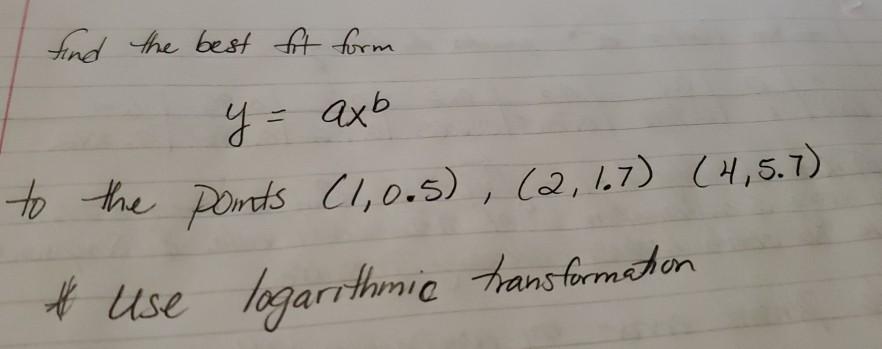 find the best fit form
y = ax^b
to the points (1,0.5), (2,1.7) (4,5.7)
* Use logarithmic transformation